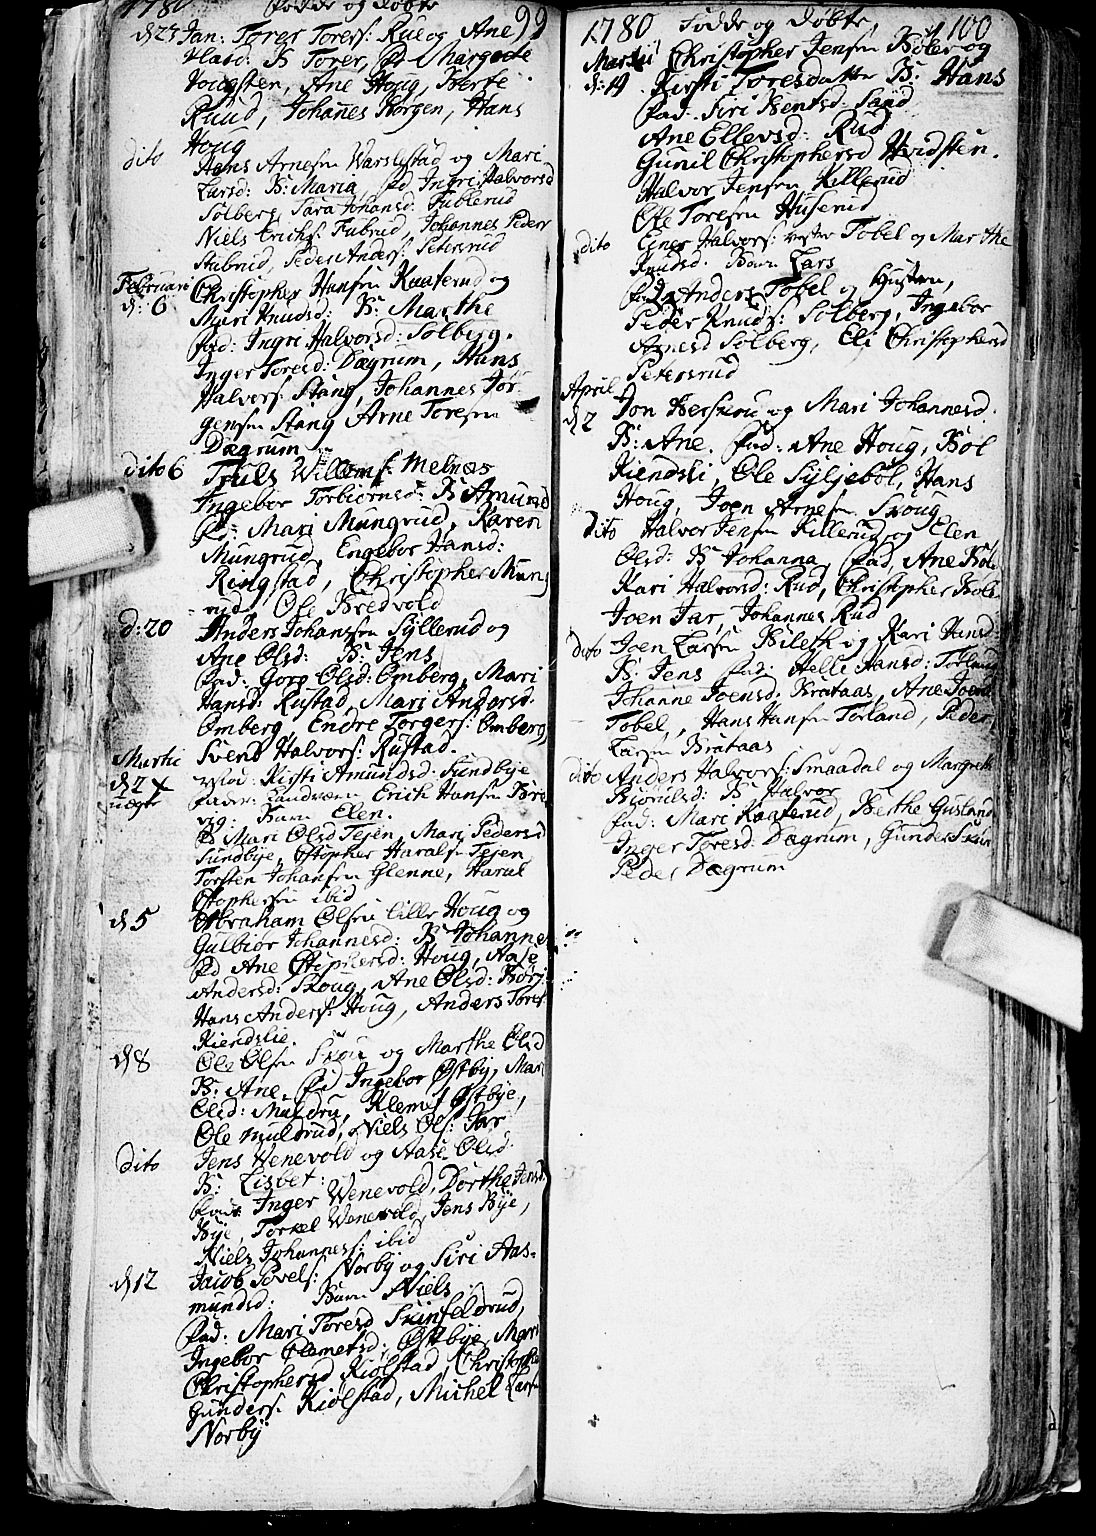 1780 Födde og Döbte 99
d 23 Jan: Torer Torers: Rue og Ane
Hasd: B Torer, Pd Margrete
Vougsten, Ane Houg, Berte
Ruud, Johannes Korgen, Hans
Houg
dito Hans Arnesen Warslystad og Mari
Larsd: B: Maria, Pd Ingri Halvorsd
Solberg, Sara Johansd: Fublerud
Niels Erichs: Fubrud, Johannes Peders
Stubrud, Peder Anders: Petersrud
Februari Christopher Hansen Kaaterud og
d: 6 Mari Knudsd: B: Marthe
fad: Ingri Halvorsd: Solberg.
Inger Toresd: Dægrum, Hans
Halvors: Stang, Johannes Jör-
gensen Stang Arne Toresen
Dægrum
dito 6 Truls Willoms: Melnæs
Ingebor Torbiörnsd: B Amund
Pd: Mari Mungrud, Karen
Mungrud, Engebor Hansd:
Ringstad, Christopher Mung
rud, Ole Bredvold
d: 20 Anders Johansen Syllerud og
Ane Olsd: B: Jens
fad: Goro Olsd: Omberg, Mari
Hansd: Rustad, Mari Andorsd:
Omberg, Endre Torgers: Omberg
Svend Halvors: Rustad.
Martii
d 2 Kirsti Amundsd: Sundbye
uægte fader: Erich Hansen
Barn Elen.
Pd Mari Olsd Tejen, Mari Pedersd
Sundbye, Cstopher Harals: Tejen
Torsten Johansen Glenne, Harul
Cstophersen ibid
d 5 Abraham Olsen Lille Houg og
Gulbiör Johannesd: B Johanne
Pd Ane Cstophersd: Houg, Aase
Andersd: Skoug, Ane Olsd: Börj
Hans Anders: Houg, Anders Tores:
Kiendslie.
d 8 Ole Olsen Skou og Marthe Olsd
B: Ane, Pd Ingebor Östby, Mari
Olsd: Muldru, Klemet Östbye,
Ole Muldrud, Niels Ols: Jar
dito Jens Wenevold og Aase Olsd
B: Lisbet:
fad: Inger Wenevold, Dorthe Jensd:
Bye, Torkel Wenevold, Jens Bye,
Niels Johanness: ibid
d 12 Jacob Povels: Norby og Siri Aas-
mundsd: Barn Niels
fad: Mari Toresd Skinfeldrud,
Ingebor Clemetsd: Östbye, Mari
Christophersd Kiölstad, Christopher
Gunders: Kiölstad, Michel Larsen
Norby
1780 Födde og Döbte, 100
Martii Christopher Jensen Böler og
d: 19 Kirsti Toresdatter B: Hans
fad: Siri Bentsd: Sand
Ane Ellevsd: Rud
Gunil Christophersd Hvidsten.
Halvor Jensen Killerud
Ole Toresen Huserud
dito Einer Halvors: vester Tobel og Marthe
Knudsd: Barn Lars
fad: Anders Tobel og Hustru,
Peder Knuds: Solberg, Ingebor
Arnesd Solberg, Eli Christophersd
Petersrud
April
d 2 Jon Berskou og Mari Johannesd:
B: Ane. fad: Ane Houg, Böl
Kiendsli, Ole Syljeböl, Hans
Houg, Joen Arnesen Skoug
dito Halvor Jensen Killerud og Elen
Olsd: B Johanna, fad, Ane Böl
Kari Halvorsd: Rud, Christopher Böle
Joen Jar, Johannes Rud
dito Joen Larsen Bileth og Kari Hansd:
B: Jens fad: Helli Hansd: Tobel
Johanne Joensd: Brataas, Ane Joensd:
Tobel, Hans Hansen Torland, Peder
Larsen Brataas
dito Anders Halvors: Smaadal og Margrethe
Biörulsd: B: Halvor
fad: Mari Kaaterud, Berthe Gustand
Inger Toresd: Dægrum, Gunder
Peder Dægrum